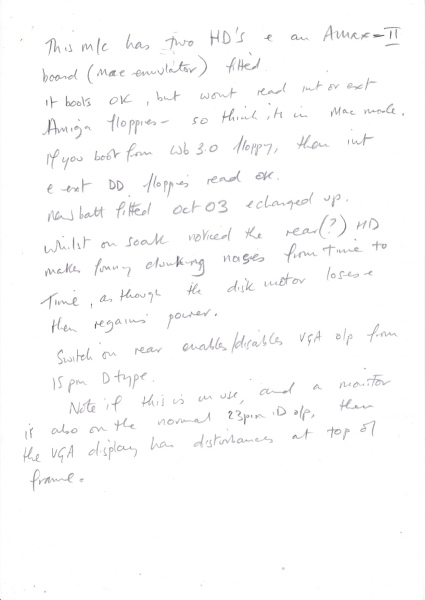 This m/c has two HD's & an AMAX-II
board (Mac emulator) fitted.
it boots OK, but wont read int or ext
Amiga floppies - so think its in Mac mode.
If you boot from Wb 3.0 floppy, then int
& ext DD floppies read ok.
new batt fitted oct 03 & charged up.
whilst on soak noticed the rear(?) HD
makes funny clunking noises from time to
time, as though the disk motor loses &
then regains power.
Switch on rear enables/disables VGA o/p from
15 pin D type.
Note if this is in use, and a monitor
is also on the normal 23pin D o/p, then
the VGA display has disturbances at top of
frame.